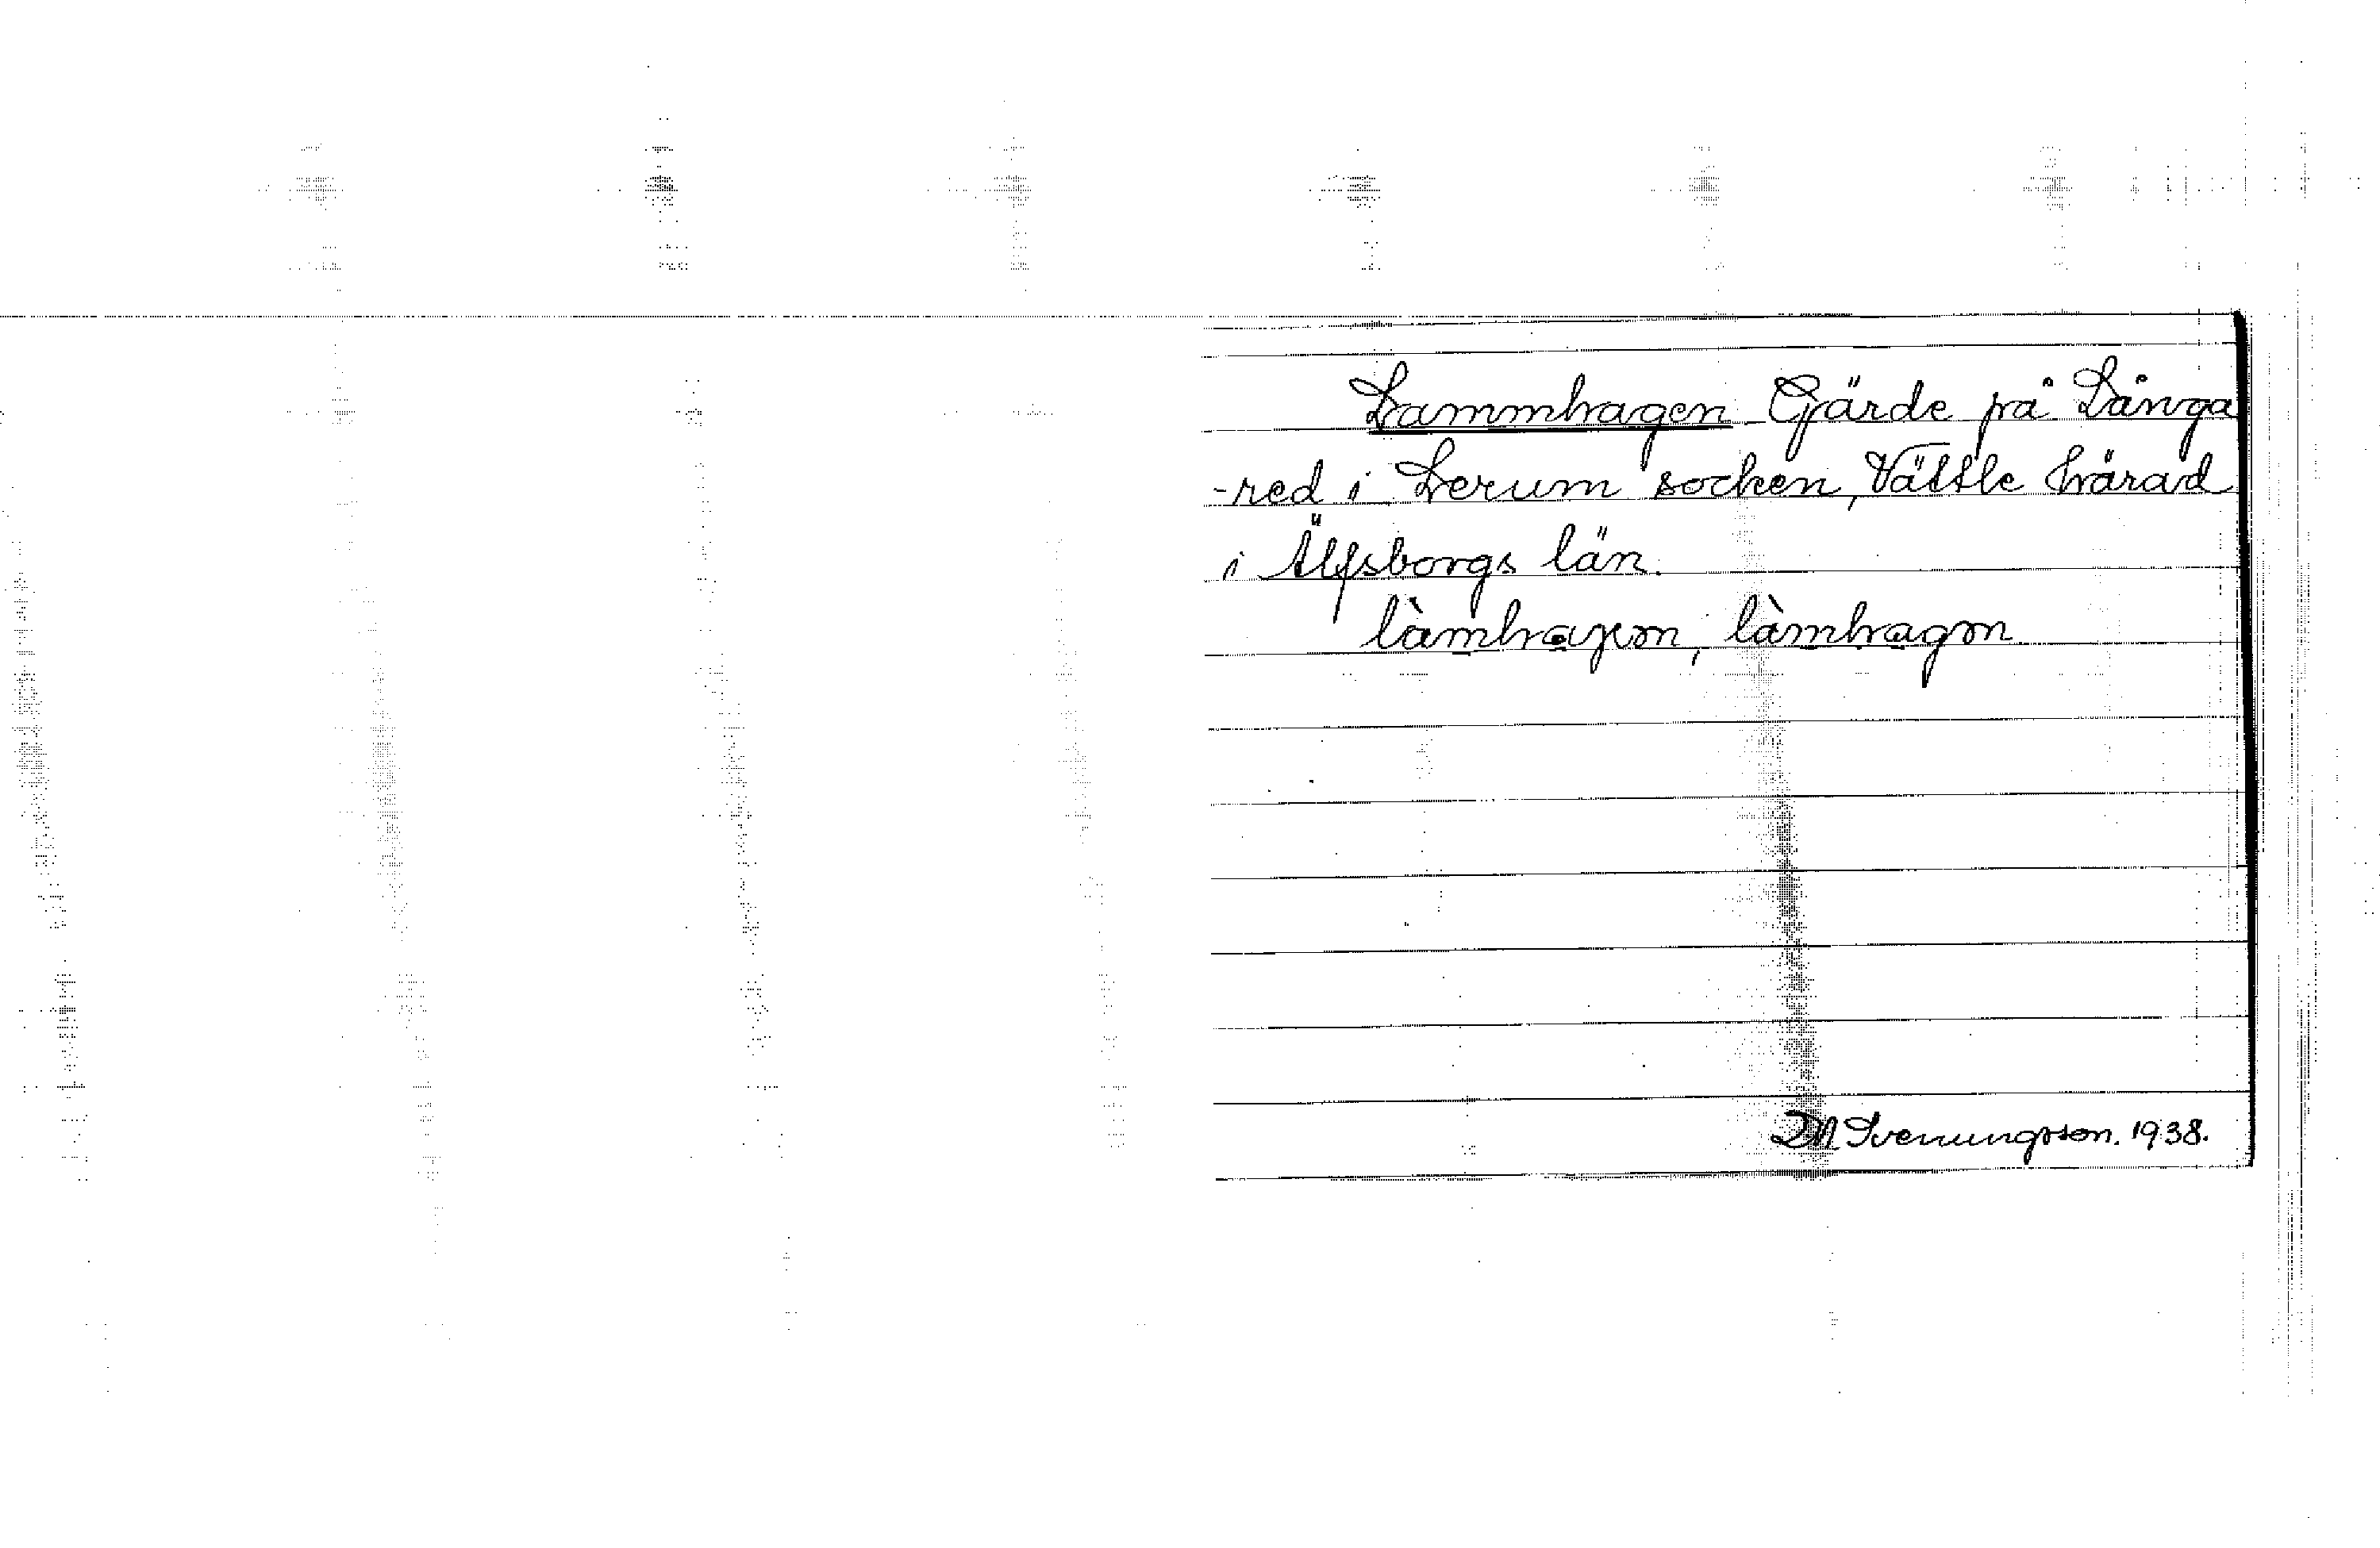 Lammhagen Gärde på Långa
-red i Lerum socken, Vättle härad
i Älfsborgs län.
làmhagen, làmhagen
DA Svenungsson. 1938.